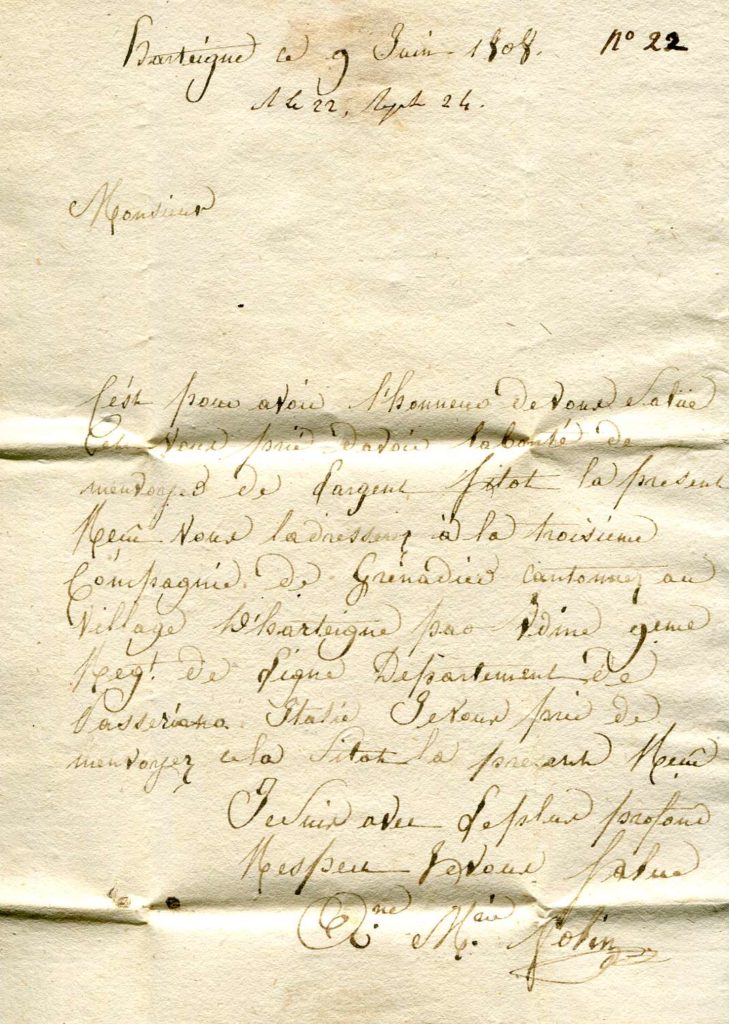 harteigne ce 9 Juin 1808. N° 22
R le 22, Rep le 24.
Monsieur
C'est pour avoir l'honneur de vous Salüé
Et vous prié d'avoir la bonté de
menvoyer de Largent Sitot la present
Reçüe vous ladresserez à la troisieme
Compagnie de Grénadier cantonnez au
Village D'harteigne par Udine 9eme
Regt. de Ligne Departement de
Passeriano Italie Je vous prie de
menvoyez cela Sitot la presente Reçüe
Je Suis avec Le plus profond
Respect Je vous Salue